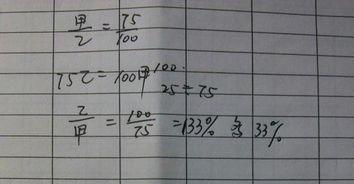 甲/乙 = 75/100
75乙 = 100甲 100·
25 ÷ 75
乙/甲 = 100/75 = 133% 多 33%